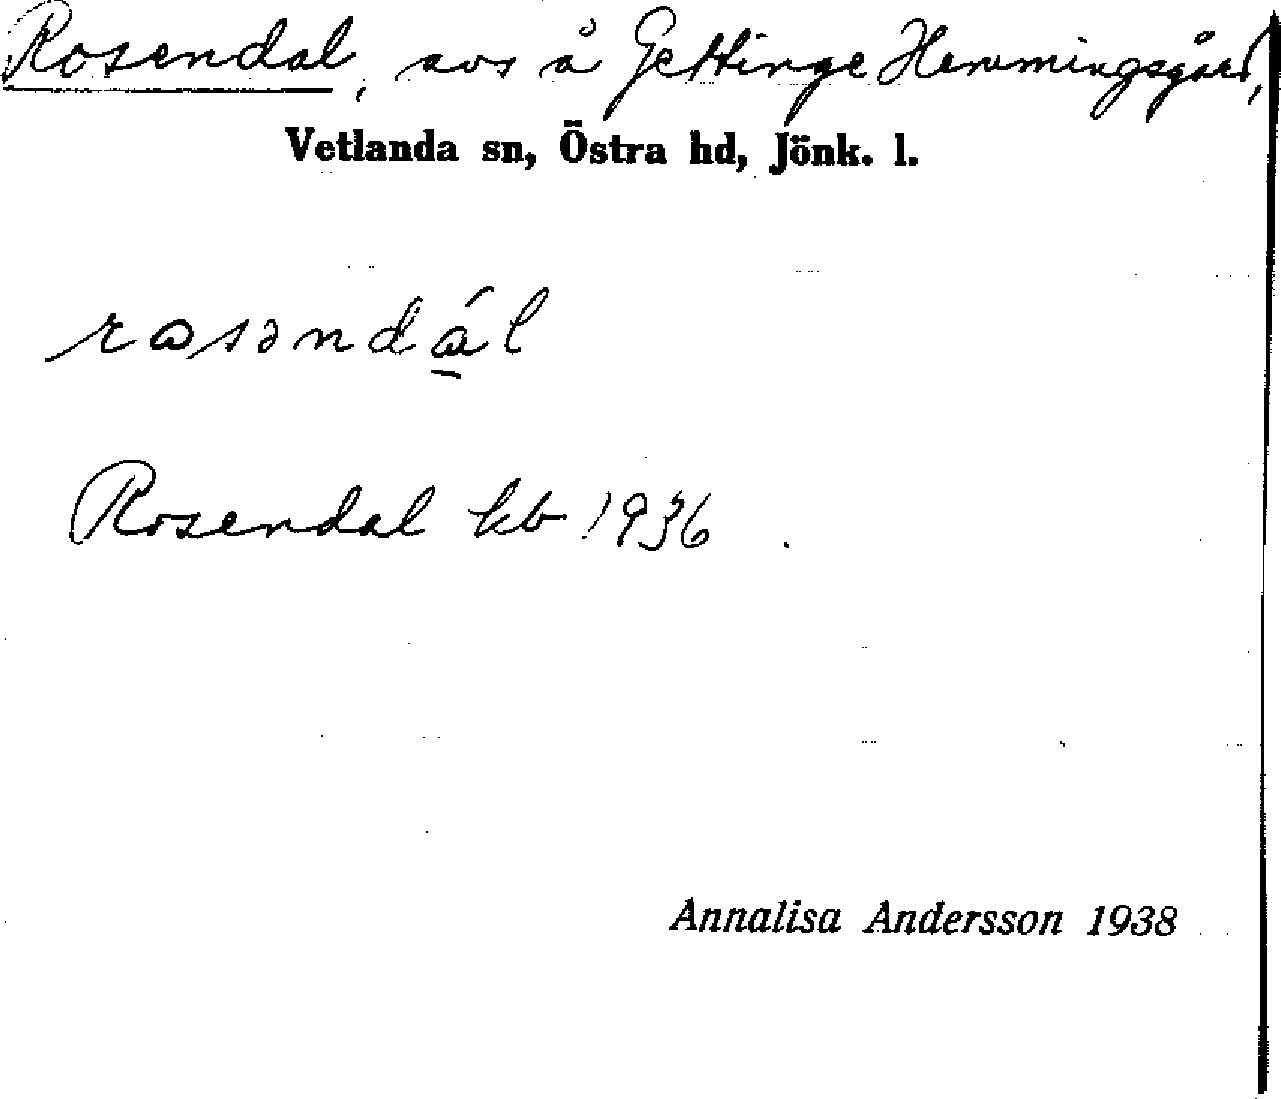 Rosendal, avs å Gettinge Hemmingsgård,
Vetlanda sn, Östra hd, Jönk. l.
rosəndál
Rosendal kb 1936.
Annalisa Andersson 1938